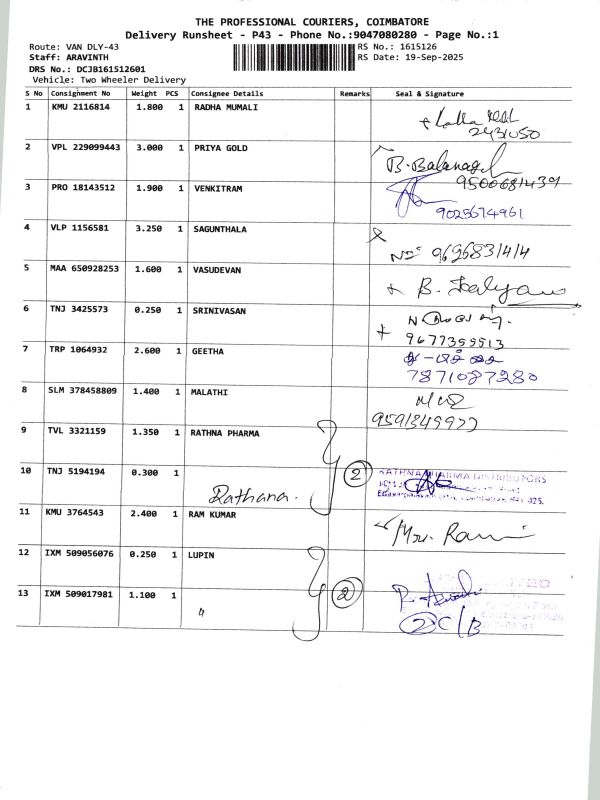 THE PROFESSIONAL COURIERS, COIMBATORE
Delivery Runsheet - P43 - Phone No.:9047080280 - Page No.:1
Route: VAN DLY-43
RS No.: 1615126
Staff: ARAVINTH
RS Date: 19-Sep-2025
DRS No.: DCJB161512601
Vehicle: Two Wheeler Delivery
S No Consignment No Weight PCS Consignee Details Remarks Seal & Signature
1 KMU 2116814 1.800 1 RADHA MUMALI
2431050
2 VPL 229099443 3.000 1 PRIYA GOLD
B. Balanagel
9500681439
3 PRO 18143512 1.900 1 VENKITRAM
9025674961
4 VLP 1156581 3.250 1 SAGUNTHALA
5 MAA 650928253 1.600 1 VASUDEVAN
B. Kalyani
6 TNJ 3425573 0.250 1 SRINIVASAN
9677355513
7 TRP 1064932 2.600 1 GEETHA
7871087280
8 SLM 378458809 1.400 1 MALATHI
9591349977
9 TVL 3321159 1.350 1 RATHNA PHARMA
10 TNJ 5194194 0.300 1
Rathana.
2
RATHNA PHARMA DISTRIBUTORS
11 KMU 3764543 2.400 1 RAM KUMAR
Mrs. Rani
12 IXM 509056076 0.250 1 LUPIN
13 IXM 509017981 1.100 1 "
2
2 C/B